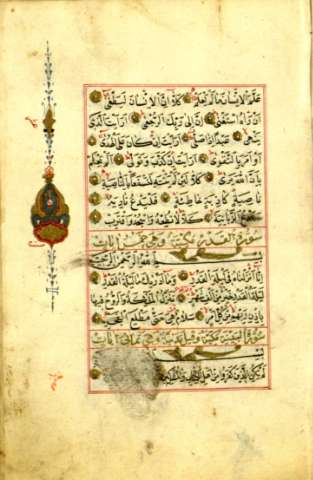 علم الانسان ما لم يعلم كلا ان الانسان ليطغى
ان راه استغنى ان الى ربك الرجعى ارايت الذى
ينهى عبدا اذا صلى ارايت ان كان على الهدى
او امر بالتقوى ارايت ان كذب وتولى الم يعلم
بان الله يرى كلا لئن لم ينته لنسفعا بالناصية
ناصية كاذبة خاطئة فليدع ناديه
سندع الزبانية كلا لا تطعه واسجد واقترب
سورة القدر مكية وهى خمس ايات
بسم الله الرحمن الرحيم
انا انزلناه فى ليلة القدر وما ادريك ما ليلة القدر
ليلة القدر خير من الف شهر تنزل الملئكة والروح فيها
باذن ربهم من كل امر سلام هى حتى مطلع الفجر
سورة البينة مكية وقيل مدنية وهى ثمانى ايات
بسم
لم يكن الذين كفروا من اهل الكتاب والمشركين